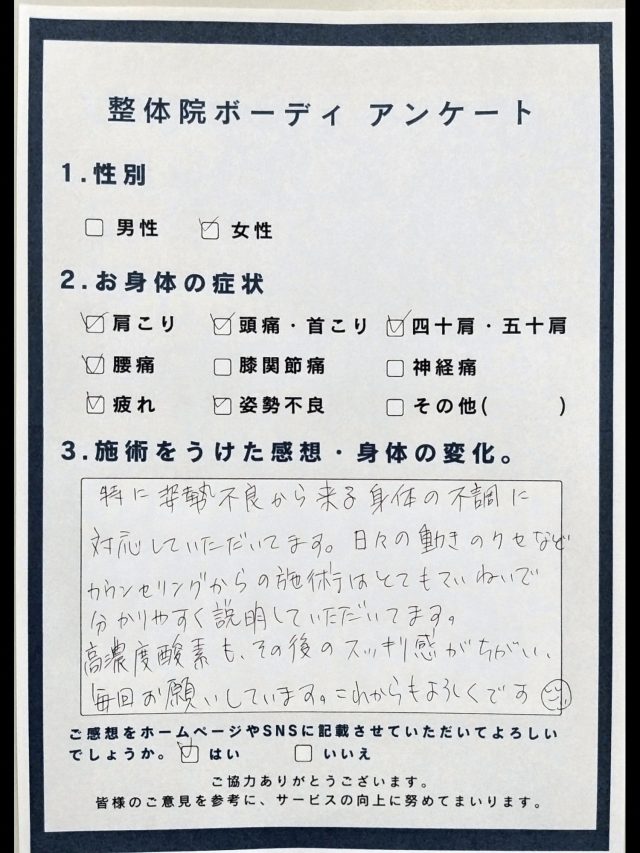 整体院ボーディ アンケート
1.性別
☐ 男性 ☑ 女性
2.お身体の症状
☑ 肩こり ☑ 頭痛・首こり ☑ 四十肩・五十肩
☑ 腰痛 ☐ 膝関節痛 ☐ 神経痛
☑ 疲れ ☑ 姿勢不良 ☐ その他( )
3.施術をうけた感想・身体の変化。
特に姿勢不良から来る身体の不調に
対応していただいてます。日々の動きのクセなど
カウンセリングからの施術はとてもていねいで
分かりやすく説明していただいてます。
高濃度酸素も、その後のスッキリ感がちがい、
毎回お願いしています。これからもよろしくです
ご感想をホームページやSNSに記載させていただいてよろしい
でしょうか。 ☑ はい ☐ いいえ
ご協力ありがとうございます。
皆様のご意見を参考に、サービスの向上に努めてまいります。